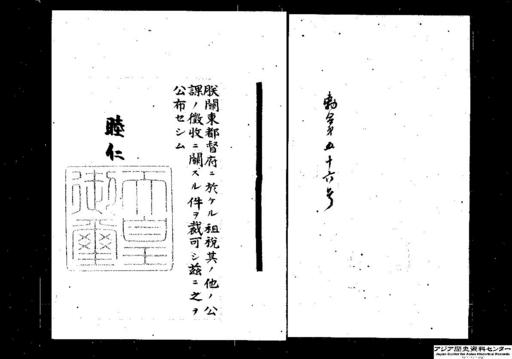 勅令第五十六号
朕關東都督府ニ於ケル租税其ノ他ノ公
課ノ徴收ニ關スル件ヲ裁可シ茲ニ之ヲ
公布セシム
睦仁
天皇
御璽
アジア歴史資料センター
Japan Center for Asian Historical Records